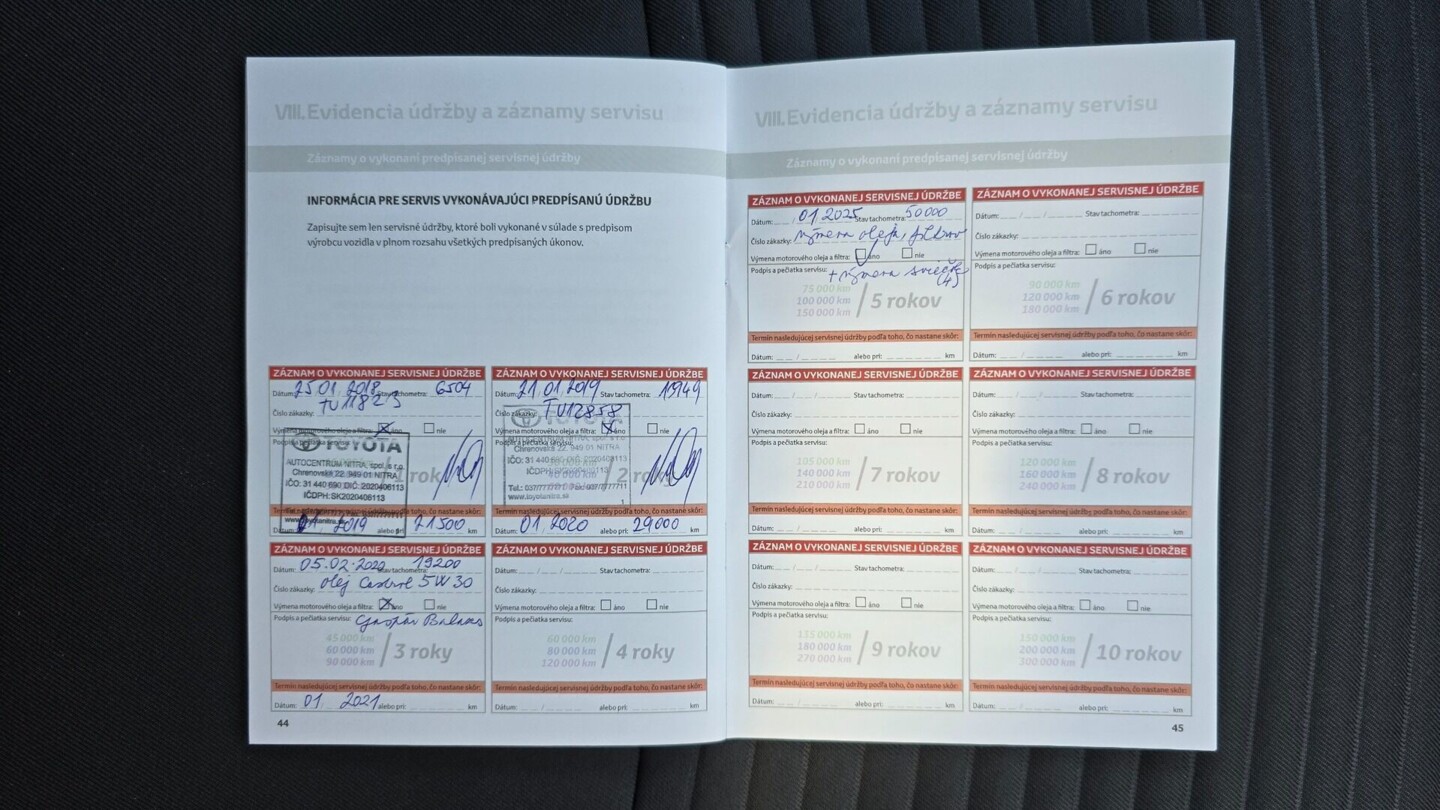 VIII. Evidencia údržby a záznamy servisu
Záznamy o vykonaní predpísanej servisnej údržby
INFORMÁCIA PRE SERVIS VYKONÁVAJÚCI PREDPÍSANÚ ÚDRŽBU
Zapisujte sem len servisné údržby, ktoré boli vykonané v súlade s predpisom
výrobcu vozidla v plnom rozsahu všetkých predpísaných úkonov.
ZÁZNAM O VYKONANEJ SERVISNEJ ÚDRŽBE
Dátum: 25 01. 2018 Stav tachometra: 6504
Číslo zákazky: TU11823
Výmena motorového oleja a filtra: áno nie
Podpis a pečiatka servisu:
TOYOTA
AUTOCENTRUM NITRA, spol. s r.o.
Chrenovská 22, 949 01 NITRA
IČO: 31 440 690 DIČ: 2020406113
IČDPH: SK2020406113
www.toyotanitra.sk
Termín nasledujúcej servisnej údržby podľa toho, čo nastane skôr:
2019 alebo pri 21500 km
ZÁZNAM O VYKONANEJ SERVISNEJ ÚDRŽBE
Dátum: 21 01. 2019 Stav tachometra: 13949
Číslo zákazky: TU12858
Výmena motorového oleja a filtra: áno nie
Podpis a pečiatka servisu:
AUTOCENTRUM NITRA, spol. s r.o.
Chrenovská 22, 949 01 NITRA
IČO: 31 440 690 DIČ: 2020406113
IČDPH: SK2020406113
www.toyotanitra.sk
Termín nasledujúcej servisnej údržby podľa toho, čo nastane skôr:
Dátum: 01. 2020 alebo pri: 29000 km
ZÁZNAM O VYKONANEJ SERVISNEJ ÚDRŽBE
Dátum: 05.02.2020 Stav tachometra: 19200
Číslo zákazky: olej Castrol 5W30
Výmena motorového oleja a filtra: áno nie
Podpis a pečiatka servisu: Gašpar
45 000 km
60 000 km
90 000 km
/ 3 roky
Termín nasledujúcej servisnej údržby podľa toho, čo nastane skôr:
Dátum: 01 2021 alebo pri: km
ZÁZNAM O VYKONANEJ SERVISNEJ ÚDRŽBE
Dátum: / / Stav tachometra:
Číslo zákazky:
Výmena motorového oleja a filtra: áno nie
Podpis a pečiatka servisu:
60 000 km
80 000 km
120 000 km
/ 4 roky
Termín nasledujúcej servisnej údržby podľa toho, čo nastane skôr:
Dátum: / alebo pri: km
44
VIII. Evidencia údržby a záznamy servisu
Záznamy o vykonaní predpísanej servisnej údržby
ZÁZNAM O VYKONANEJ SERVISNEJ ÚDRŽBE
Dátum: 01.2025 Stav tachometra: 50000
Číslo zákazky: výmena oleja, filtrov
Výmena motorového oleja a filtra: áno nie
Podpis a pečiatka servisu: + výmena
(4)
75 000 km
100 000 km
150 000 km
/ 5 rokov
Termín nasledujúcej servisnej údržby podľa toho, čo nastane skôr:
Dátum: / alebo pri: km
ZÁZNAM O VYKONANEJ SERVISNEJ ÚDRŽBE
Dátum: / / Stav tachometra:
Číslo zákazky:
Výmena motorového oleja a filtra: áno nie
Podpis a pečiatka servisu:
90 000 km
120 000 km
180 000 km
/ 6 rokov
Termín nasledujúcej servisnej údržby podľa toho, čo nastane skôr:
Dátum: / alebo pri: km
ZÁZNAM O VYKONANEJ SERVISNEJ ÚDRŽBE
Dátum: / / Stav tachometra:
Číslo zákazky:
Výmena motorového oleja a filtra: áno nie
Podpis a pečiatka servisu:
105 000 km
140 000 km
210 000 km
/ 7 rokov
Termín nasledujúcej servisnej údržby podľa toho, čo nastane skôr:
Dátum: / alebo pri: km
ZÁZNAM O VYKONANEJ SERVISNEJ ÚDRŽBE
Dátum: / / Stav tachometra:
Číslo zákazky:
Výmena motorového oleja a filtra: áno nie
Podpis a pečiatka servisu:
120 000 km
160 000 km
240 000 km
/ 8 rokov
Termín nasledujúcej servisnej údržby podľa toho, čo nastane skôr:
Dátum: / alebo pri: km
ZÁZNAM O VYKONANEJ SERVISNEJ ÚDRŽBE
Dátum: / / Stav tachometra:
Číslo zákazky:
Výmena motorového oleja a filtra: áno nie
Podpis a pečiatka servisu:
135 000 km
180 000 km
270 000 km
/ 9 rokov
Termín nasledujúcej servisnej údržby podľa toho, čo nastane skôr:
Dátum: / alebo pri: km
ZÁZNAM O VYKONANEJ SERVISNEJ ÚDRŽBE
Dátum: / / Stav tachometra:
Číslo zákazky:
Výmena motorového oleja a filtra: áno nie
Podpis a pečiatka servisu:
150 000 km
200 000 km
300 000 km
/ 10 rokov
Termín nasledujúcej servisnej údržby podľa toho, čo nastane skôr:
Dátum: / alebo pri: km
45